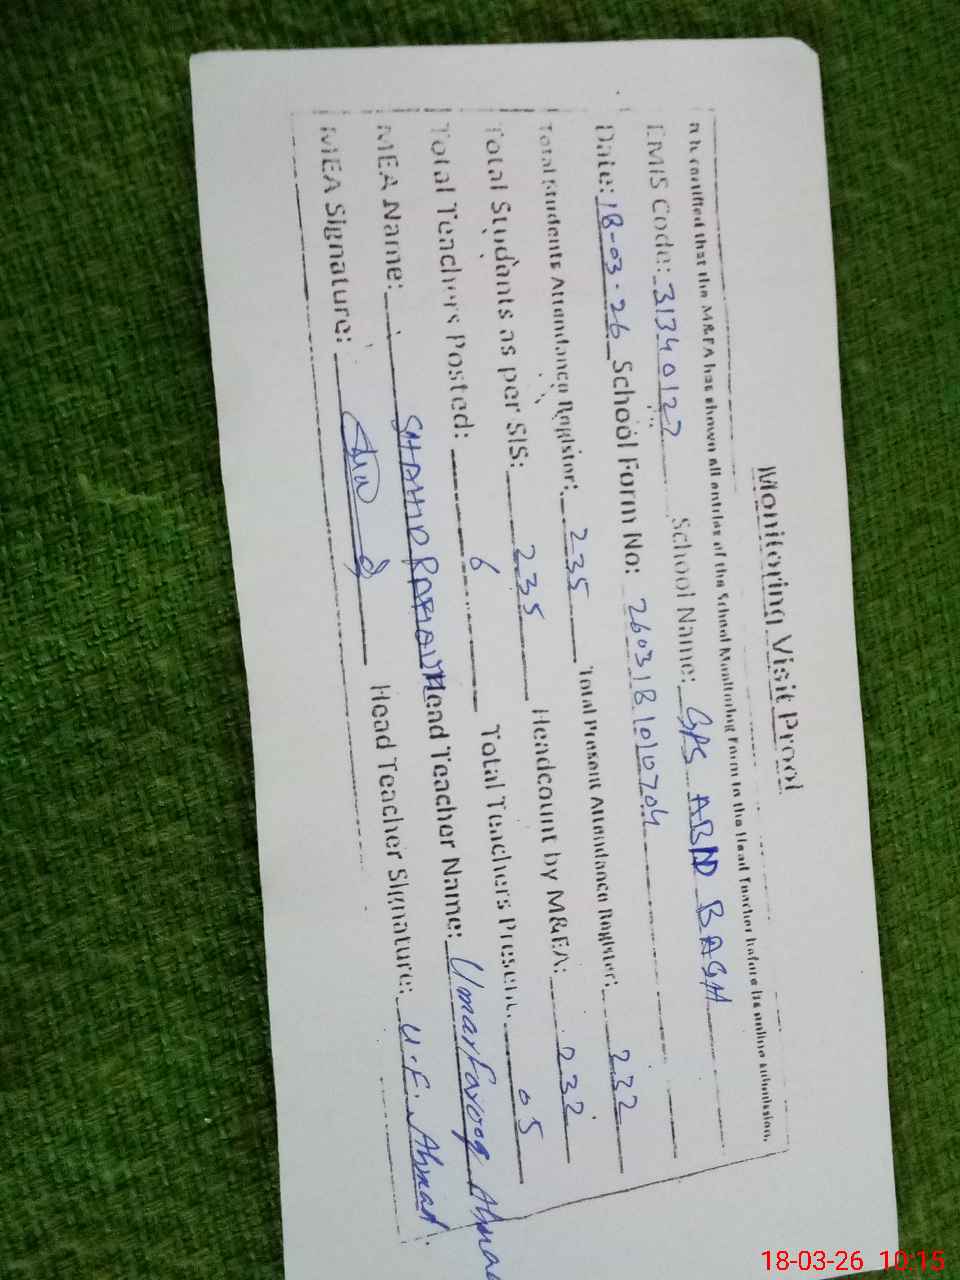 Monitoring Visit Proof
It is certified that the M&EA has shown all entries of the School Monitoring Form to the Head Teacher before its online submission.
EMIS Code: 31340127 School Name: GPS ABND BASH
Date: 18-03-26 School Form No: 2603181010704
Total Students Attendance Register: 235 Total Present Attendance Register: 232
Total Students as per SIS: 235 Headcount by M&EA: 232
Total Teachers Posted: 6 Total Teachers Present: 05
MEA Name: Head Teacher Name: Umar Farooq Ahmad
MEA Signature: Head Teacher Signature: U.F. Ahmad
18-03-26 10:15